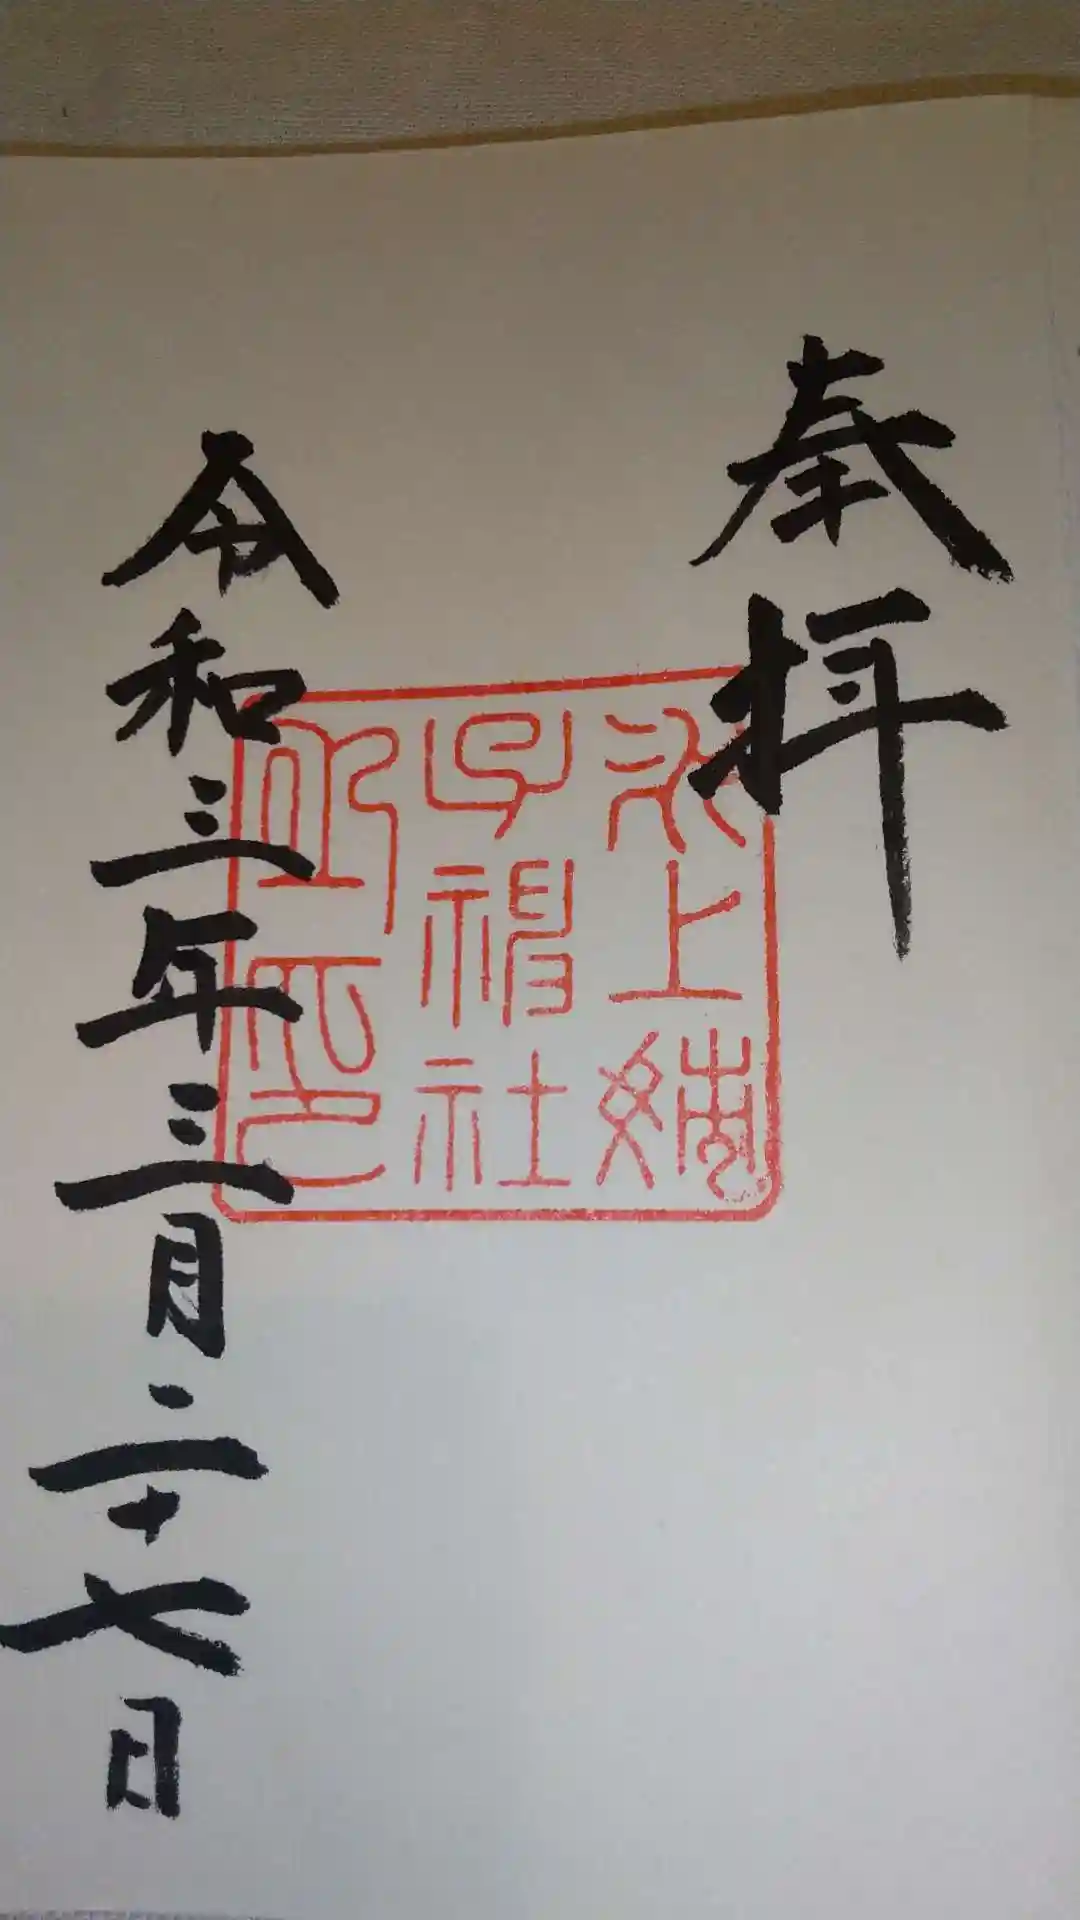 奉拝
氷上姉
子神社
印
令和三年三月二十七日